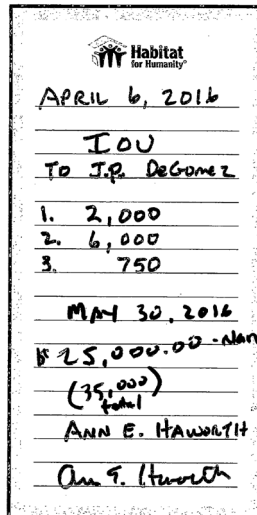 Habitat
for Humanity®
APRIL 6, 2016
IOU
To J.P. DeGomez
1. 2,000
2. 6,000
3. 750
MAY 30, 2016
25,000.00 -
(35,000)
total
ANN E. HAWORTH